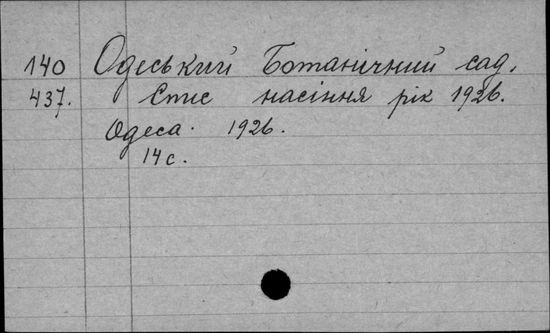 140 Одеський Ботанічний сад.
437. Спис насіння рік 1926.
Одеса. 1926.
14 с.